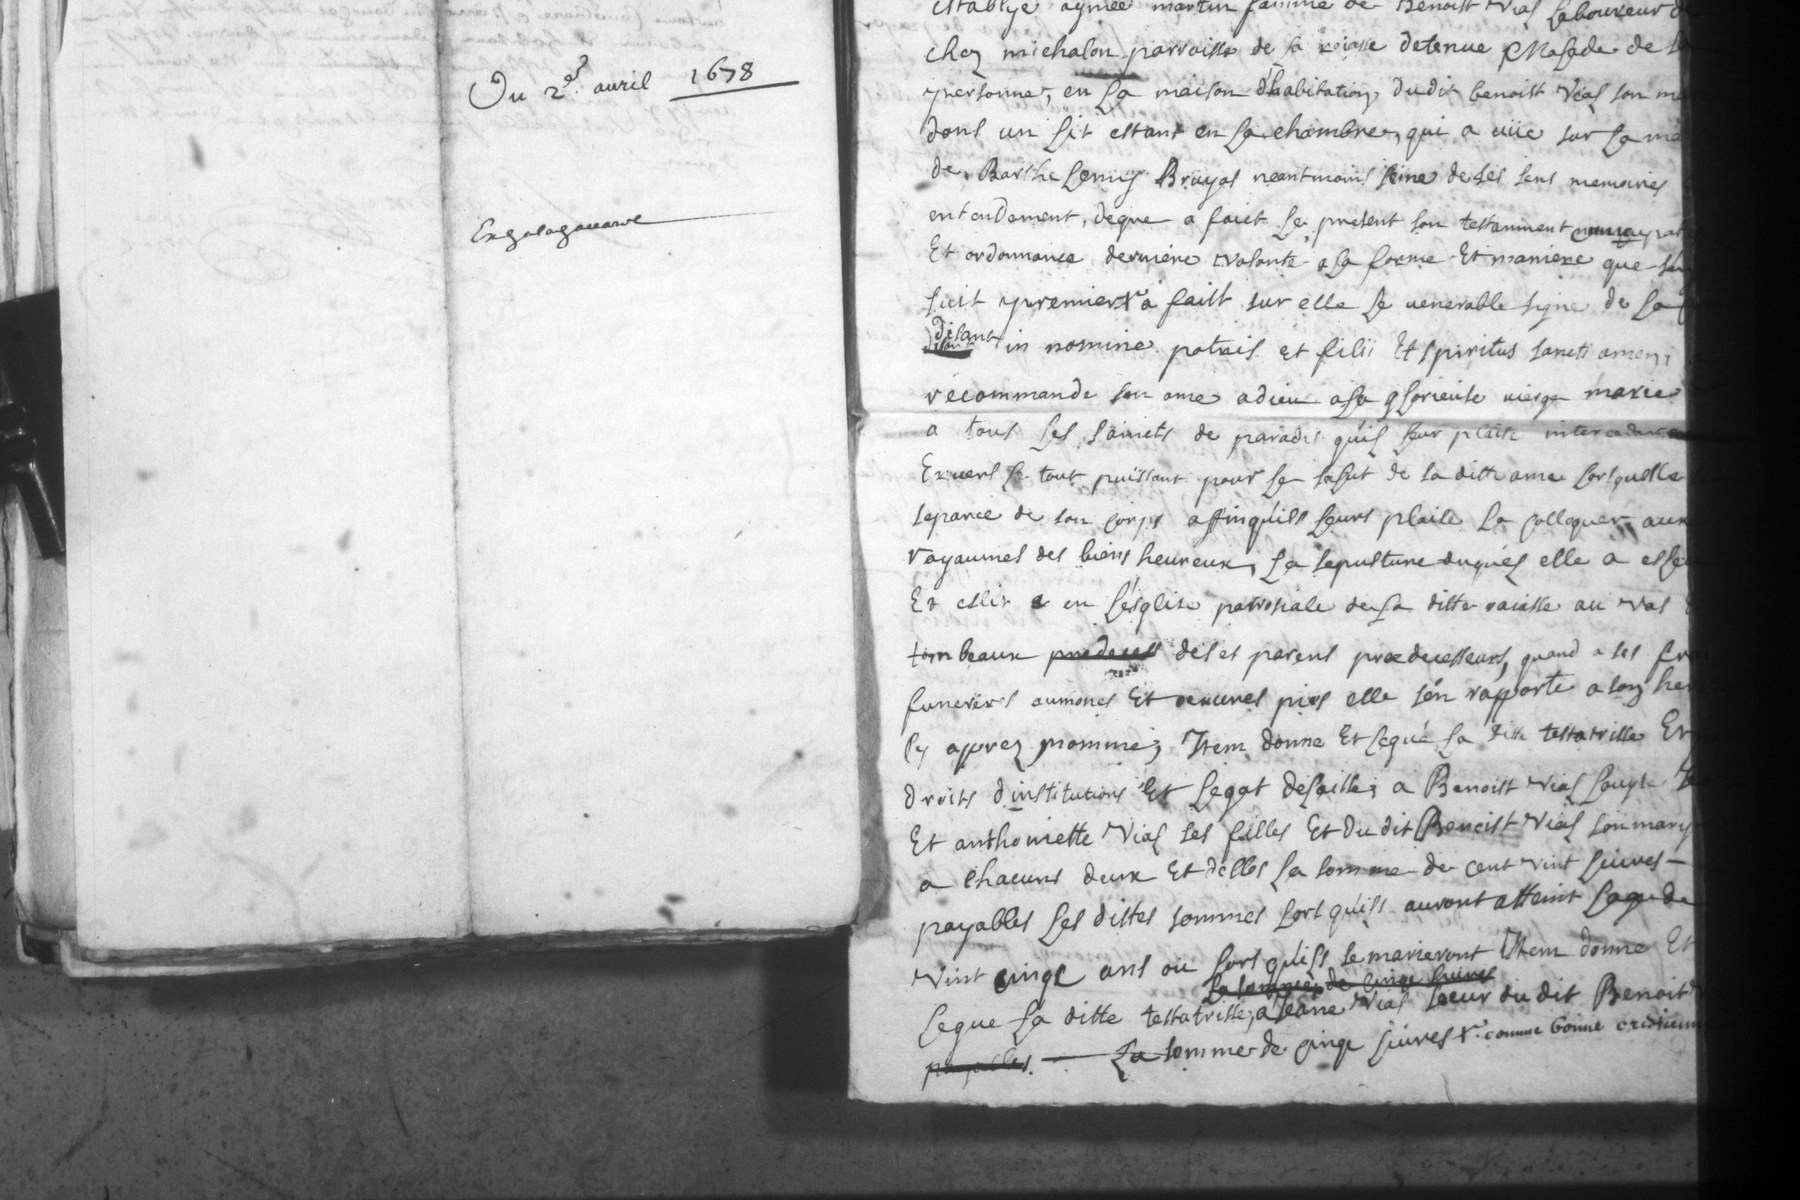 Du 2e avril 1678
establye aymée martin famme de Benoist Vial laboureur d
chez michalon parroisse de la valasse detenue Malade de sa
personne, en la maison d'habitation dudit benoist Vial son ma
dans un lit estant en la chambre, qui a vüe sur la ma
de Barthelemy Bruyas neantmoins seine de ses sens memoires
entendement, degre a faict le present son testamment
Et ordonnance derniere volonte a la forme Et maniere que sen
suit premier a faict sur elle le venerable signe de la
disant in nomine patris et filii Et spiritus sancti amen,
recommande son ame a dieu a la glorieuse vierge marie
a tous les saincts de paradis quil leur plaise interceder
Envers le tout puissant pour le salut de sa ditte ame lorsquelle
separee de son corps affinquils leurs plaise la colloquer aux
royaumes des biens heureux, la sepulture duquel elle a esleu
Et eslit en l'esglise parrosiale de la ditte valasse au vas
tombeaux predecess deses parens praedecesseurs, quand a ses fra
funerers aumones Et oeuvres pies elle s'en rapporte a son he
cy aprez nommé, Item donne Et legue la ditte testatrisse Et
droits d'institutions Et legat delaisse, a Benoist Vial
Et anthoinette Vial ses filles Et dudit Benoist Vial son mary
a chacuns deux Et d'elles la somme de cent vint livres
payables les dittes sommes lors quils auront atteint laage de
vint cinqt ans ou lors quils se marieront Item donne Et
la somme de cinqt livres
legue la ditte testatrisse, a Jeane Vial soeur du dit Benoist
payables. La somme de cinqt livres comme bonne